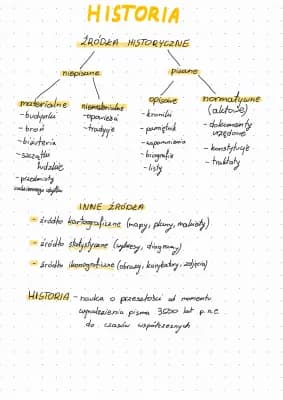 HISTORIA
ŹRÓDŁA HISTORYCZNE
niepisane
pisane
materialne
- budynki
- broń
- biżuteria
- szczątki ludzkie
- przedmioty codziennego użytku
niematerialne
- opowieści
- tradycje
opisowe
- kroniki
- pamiętnik
- wspomnienia
- biografie
- listy
normatywne
(aktowe)
- dokumenty urzędowe
- konstytucje
- traktaty
INNE ŹRÓDŁA
- źródło kartograficzne (mapy, plany, makiety)
- źródło statystyczne (wykresy, diagramy)
- źródło ikonograficzne (obrazy, karykatury, zdjęcia)
HISTORIA - nauka o przeszłości od momentu
wynalezienia pisma 3500 lat p.n.e.
do czasów współczesnych